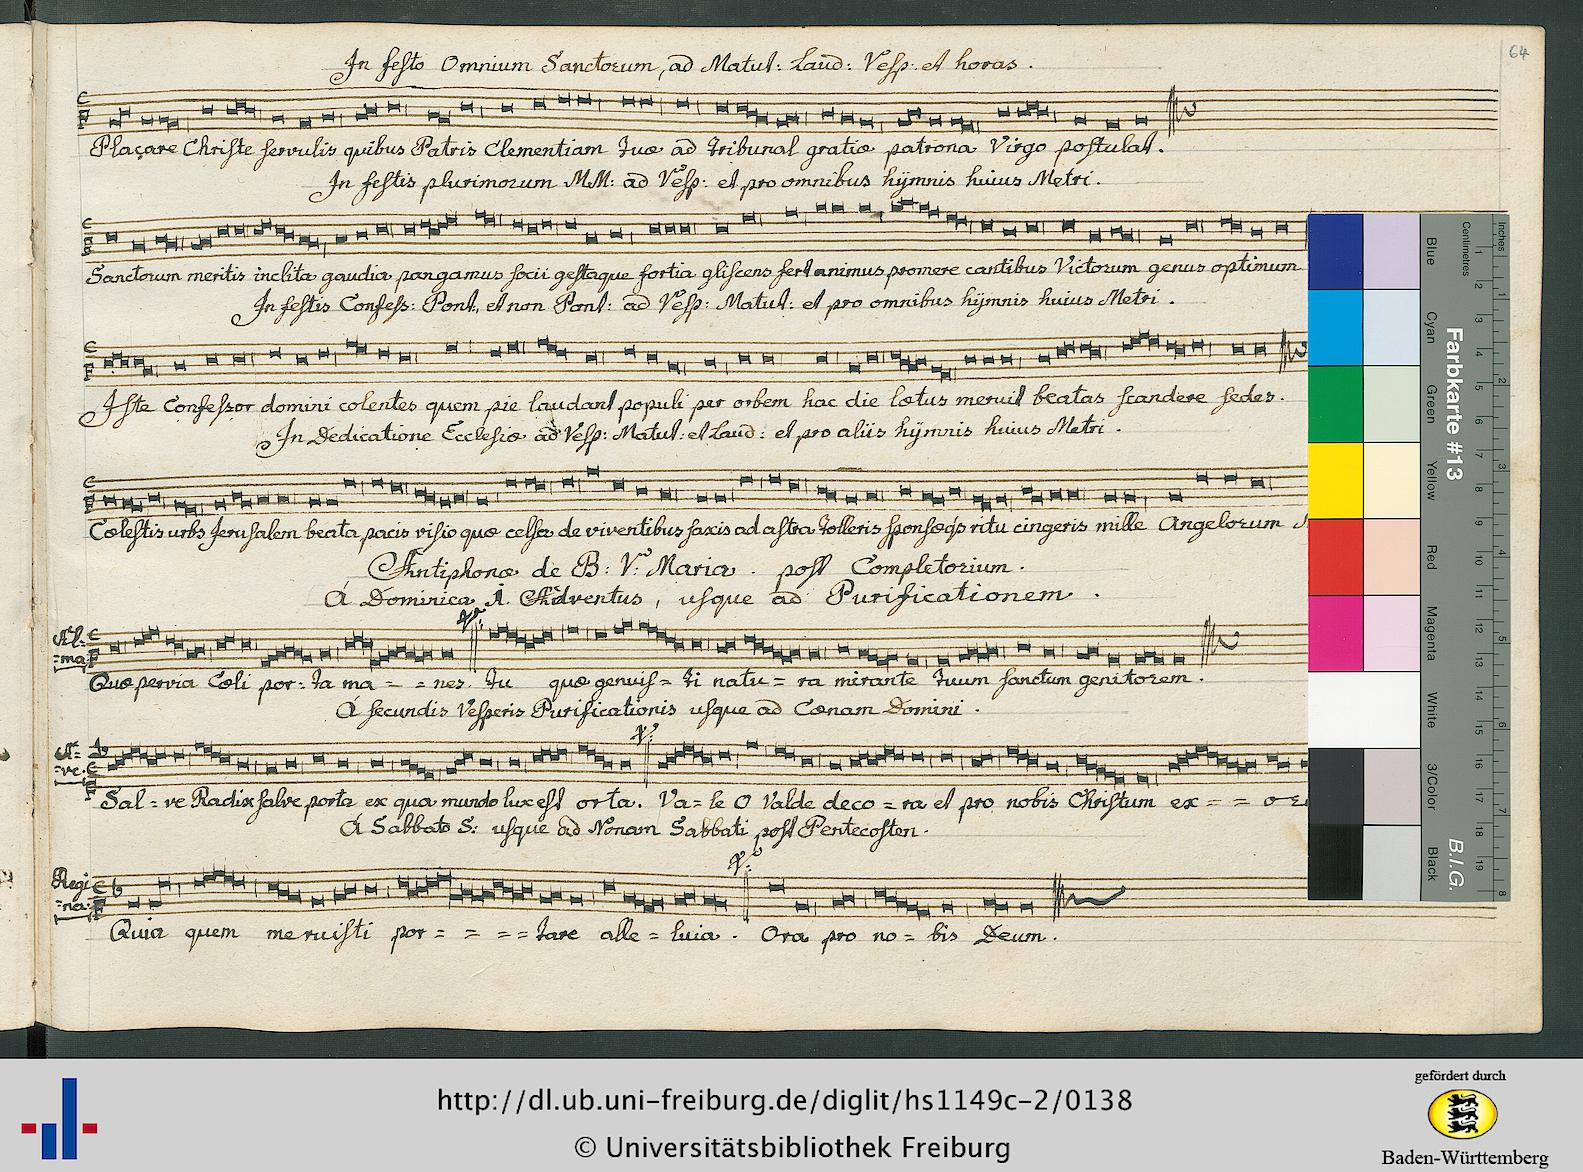 64
In festo Omnium Sanctorum, ad Matut: Laud: Vesp: et horas.
Placare Christe servulis quibus Patris Clementiam tuæ ad tribunal gratiæ patrona Virgo postulat.
In festis plurimorum MM: ad Vesp: et pro omnibus hÿmnis huius Metri.
Sanctorum meritis inclita gaudia pangamus socii gestaque fortia gliscens fert animus promere cantibus Victorum genus optimum
In festis Confess: Pont, et non Pont: ad Vesp: Matut: et pro omnibus hÿmnis huius Metri.
Iste Confessor domini colentes quem pie laudant populi per orbem hac die lætus meruit beatas scandere sedes.
In Dedicatione Ecclesiæ ad Vesp: Matut: et Laud: et pro aliis hÿmnis huius Metri.
Cœlestis urbs Jerusalem beata pacis visio quæ celsa de viventibus saxis ad astra tolleris sponsæqs ritu cingeris mille Angelorum
Antiphonæ de B: V: Maria. post Completorium.
A Dominica 1. Adventus, usque ad Purificationem.
Al=
=ma
Quæ pervia Cœli por=ta ma = = nes. tu quæ genuis=ti natu=ra mirante tuum sanctum genitorem.
A secundis Vesperis Purificationis usque ad Cœnam Domini.
A=
=ve
Sal=ve Radix salve porta ex qua mundo lux est orta. Va=le O Valde deco=ra et pro nobis Christum ex = = o
A Sabbato S: usque ad Nonam Sabbati post Pentecosten.
Regi
=na
Quia quem meruisti por= = = =tare alle=luia. Ora pro no=bis Deum.
Inches
Centimetres
1 2 3 4 5 6 7 8
1 2 3 4 5 6 7 8 9 10 11 12 13 14 15 16 17 18 19
Farbkarte #13
B.I.G.
Blue
Cyan
Green
Yellow
Red
Magenta
White
3/Color
Black
http://dl.ub.uni-freiburg.de/diglit/hs1149c-2/0138
© Universitätsbibliothek Freiburg
gefördert durch
Baden-Württemberg